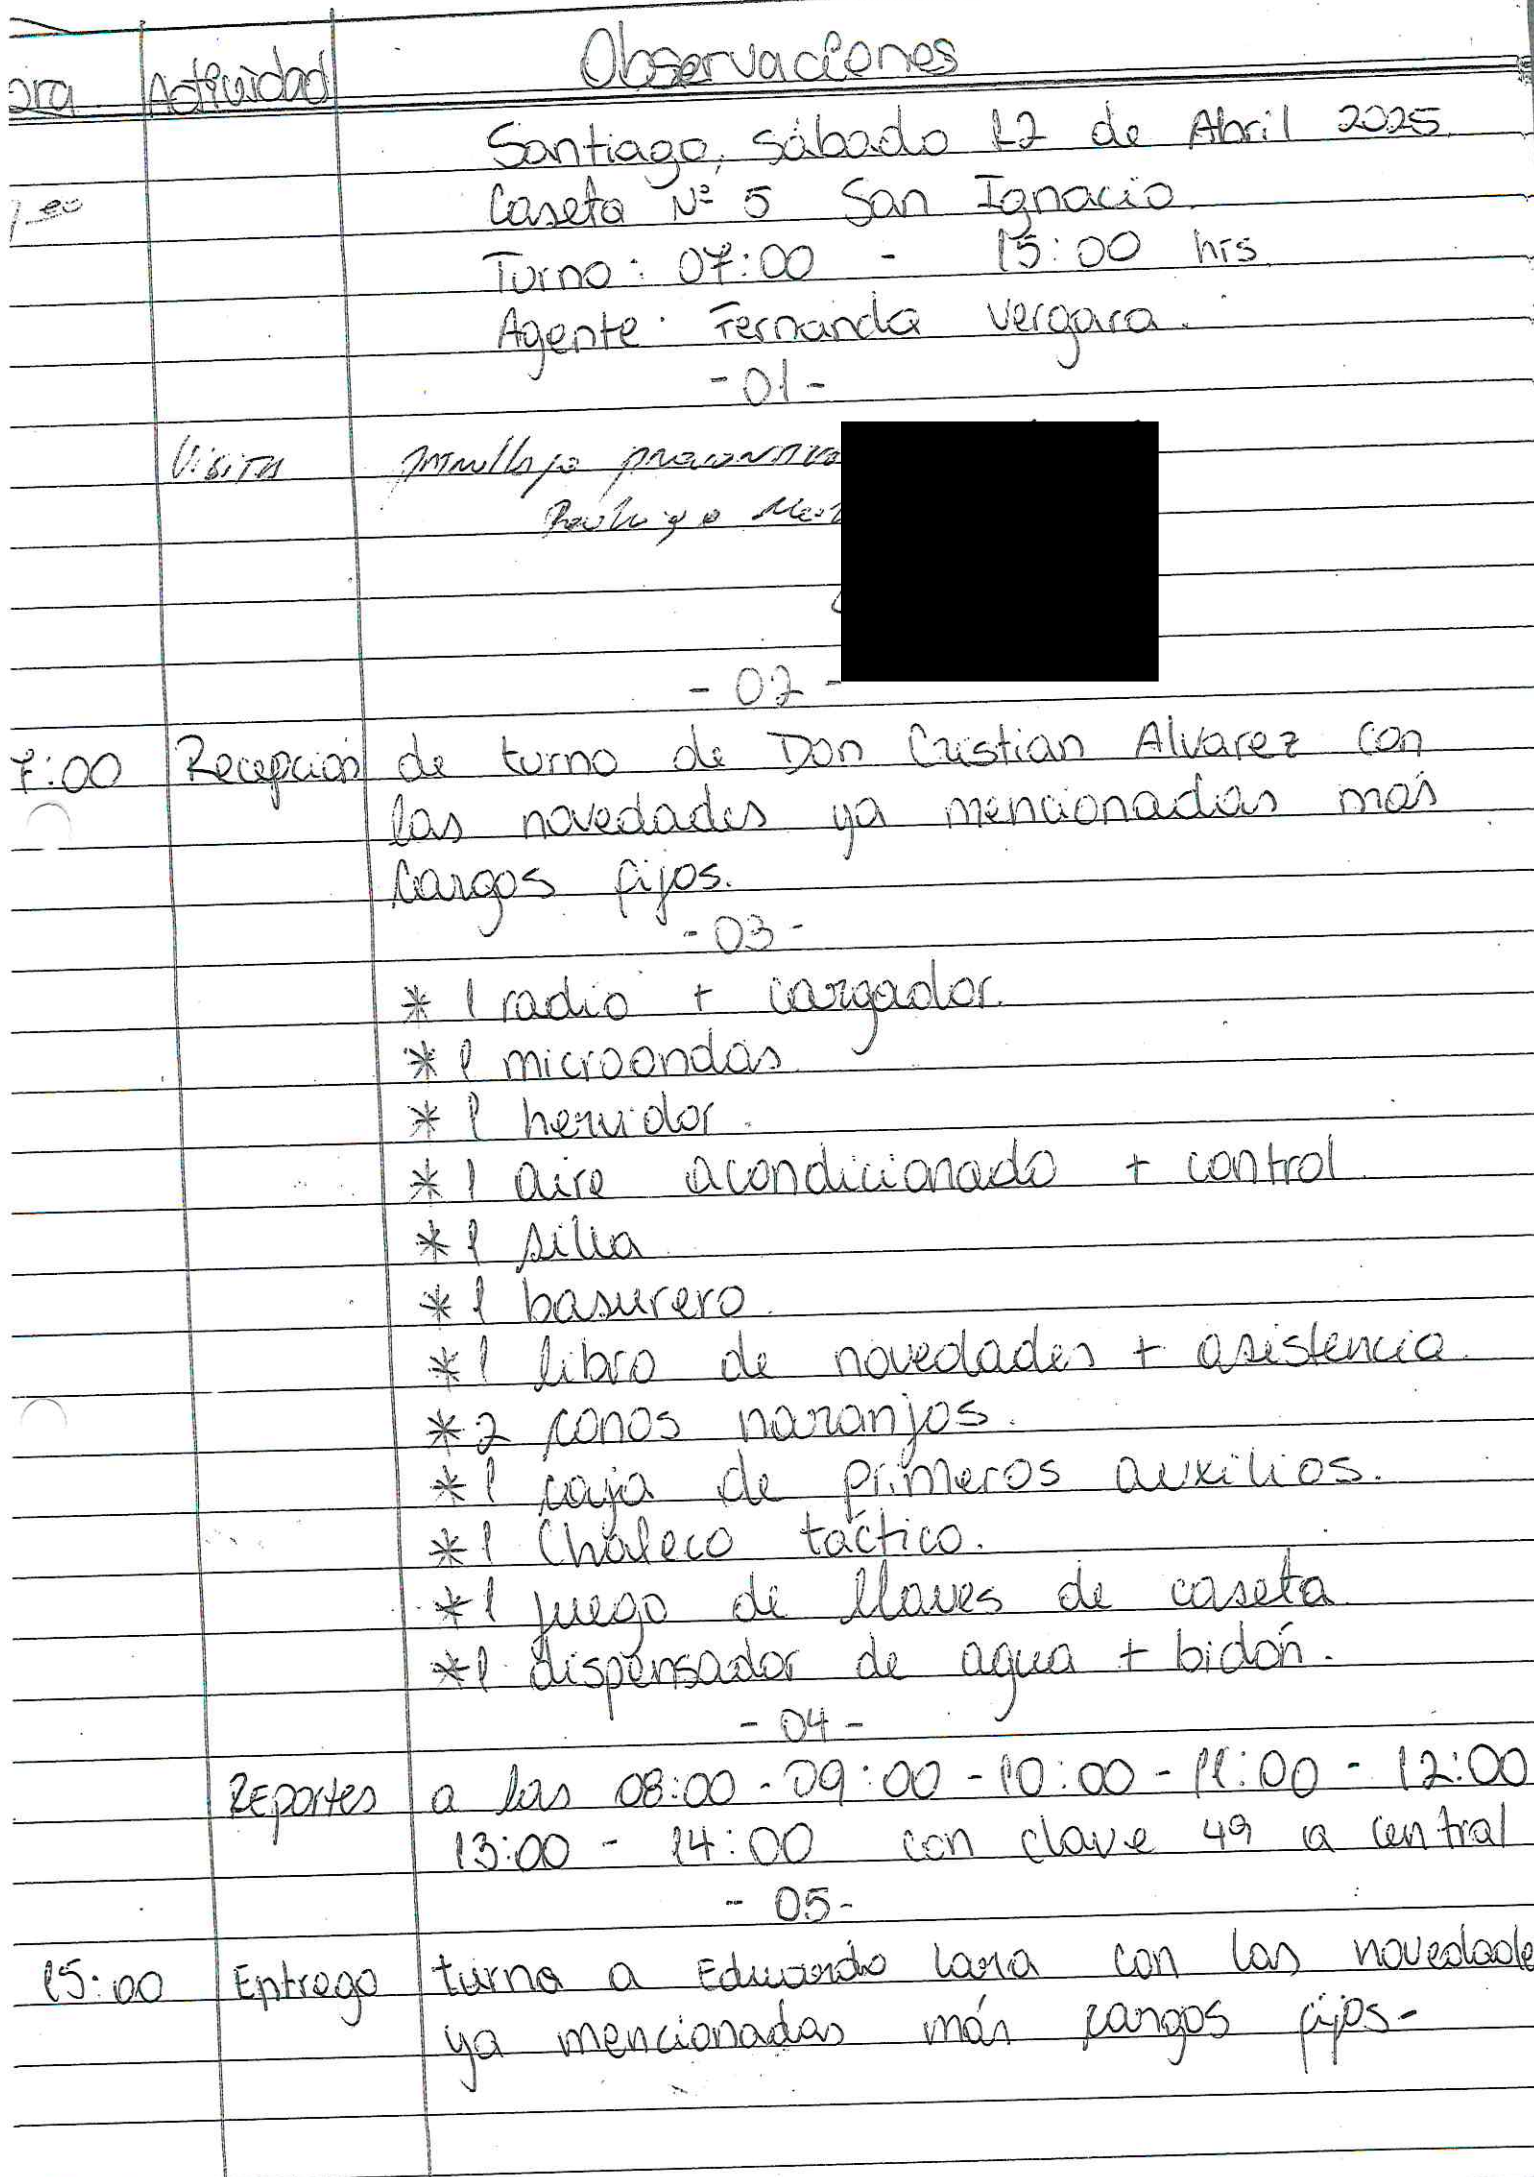 ora Actividad Observaciones
Santiago, Sábado 12 de Abril 2025.
Caseta Nº 5 San Ignacio.
Turno: 07:00 - 15:00 hrs.
Agente: Fernanda Vergara.
-01-
Visita patrullaje preventivo
Rodrigo
- 02 -
7:00 Recepción de turno de Don Cristian Alvarez con
las novedades ya mencionadas más
Cargos fijos.
-03-
* 1 radio + cargador.
* 1 microondas.
* 1 hervidor.
* 1 aire acondicionado + control
* 1 silla
* 1 basurero.
* 1 libro de novedades + asistencia.
* 2 conos naranjos.
* 1 caja de primeros auxilios.
* 1 Chaleco táctico.
* 1 juego de llaves de caseta
* 1 dispensador de agua + bidón.
- 04 -
REportes a las 08:00 - 09:00 - 10:00 - 11:00 - 12:00
13:00 - 14:00 con clave 49 a central
- 05-
15:00 Entrego turno a Eduardo Lara con las novedade
ya mencionadas más cargos fijos-